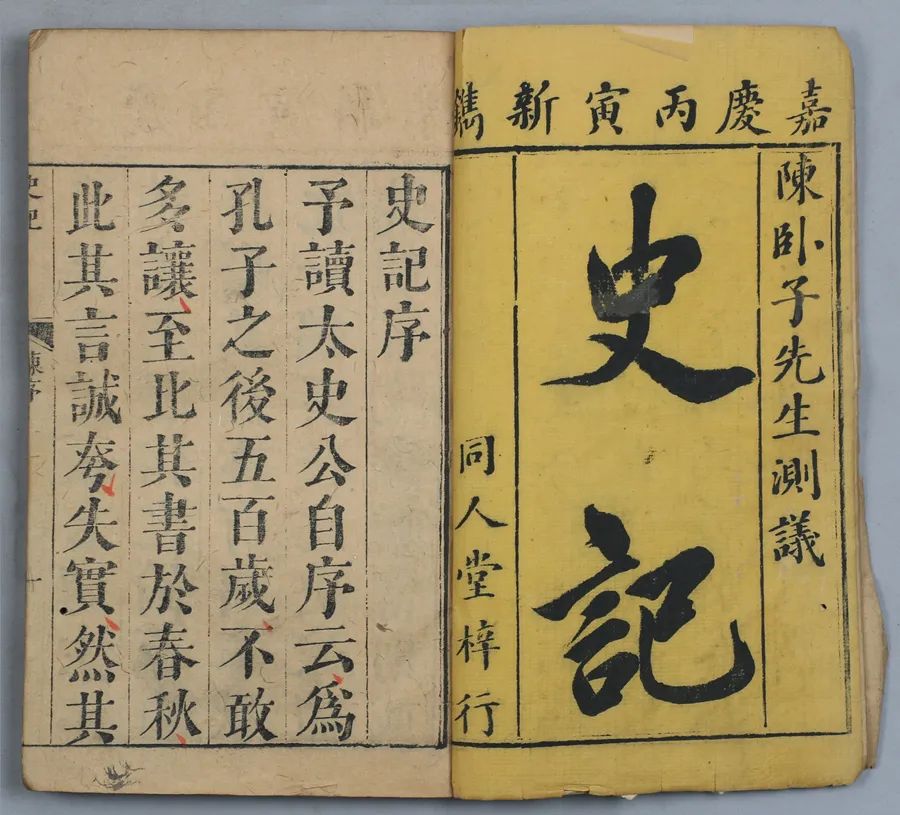 嘉慶丙寅新鐫
陳卧子先生測議
史記
同人堂梓行
史記序
予讀太史公自序云爲
孔子之後五百歲不敢
多讓至比其書於春秋
此其言誠夸失實然其
史記
陳序